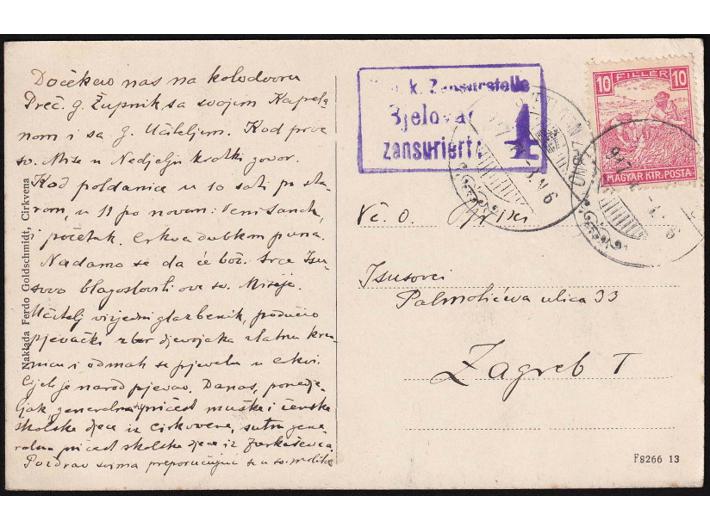 Dočekao nas na kolodvoru
Preč. g. Župnik sa svojem Kapela-
nom i sa g. Učiteljem. Kod prve
sv. Mise u Nedjelju kratki govor.
Kod poldanice u 10 sati po sta-
rom, u 11 po novem: Veni Sancte,
i početak. Crkva dubkom puna.
Nadamo se da će bož. Srce Isu-
sovo blagosloviti ove sv. Misije.
Učitelj vrijedni glazbenik, podučio
pjevački zbor djevojaka zlatnu kru-
nicu i odmah se pjevala u crkvi.
Cijeli je narod pjevao. Danas, ponedje-
ljak generalna pričest muške i ženske
školske djece iz Cirkvene, sutra gene-
ralna pričest školske djece iz Žarkaševca
Pozdrav svima preporučujući se u sv. molitve
Naklada Ferdo Goldschmidt, Cirkvena
k. Zensurstelle
Bjelovar
zensuriert
1
10 FILLÉR 10
MAGYAR KIR. POSTA
Vč. O.
Isusovci
Palmotićeva ulica 33
Zagreb I
F8266 13